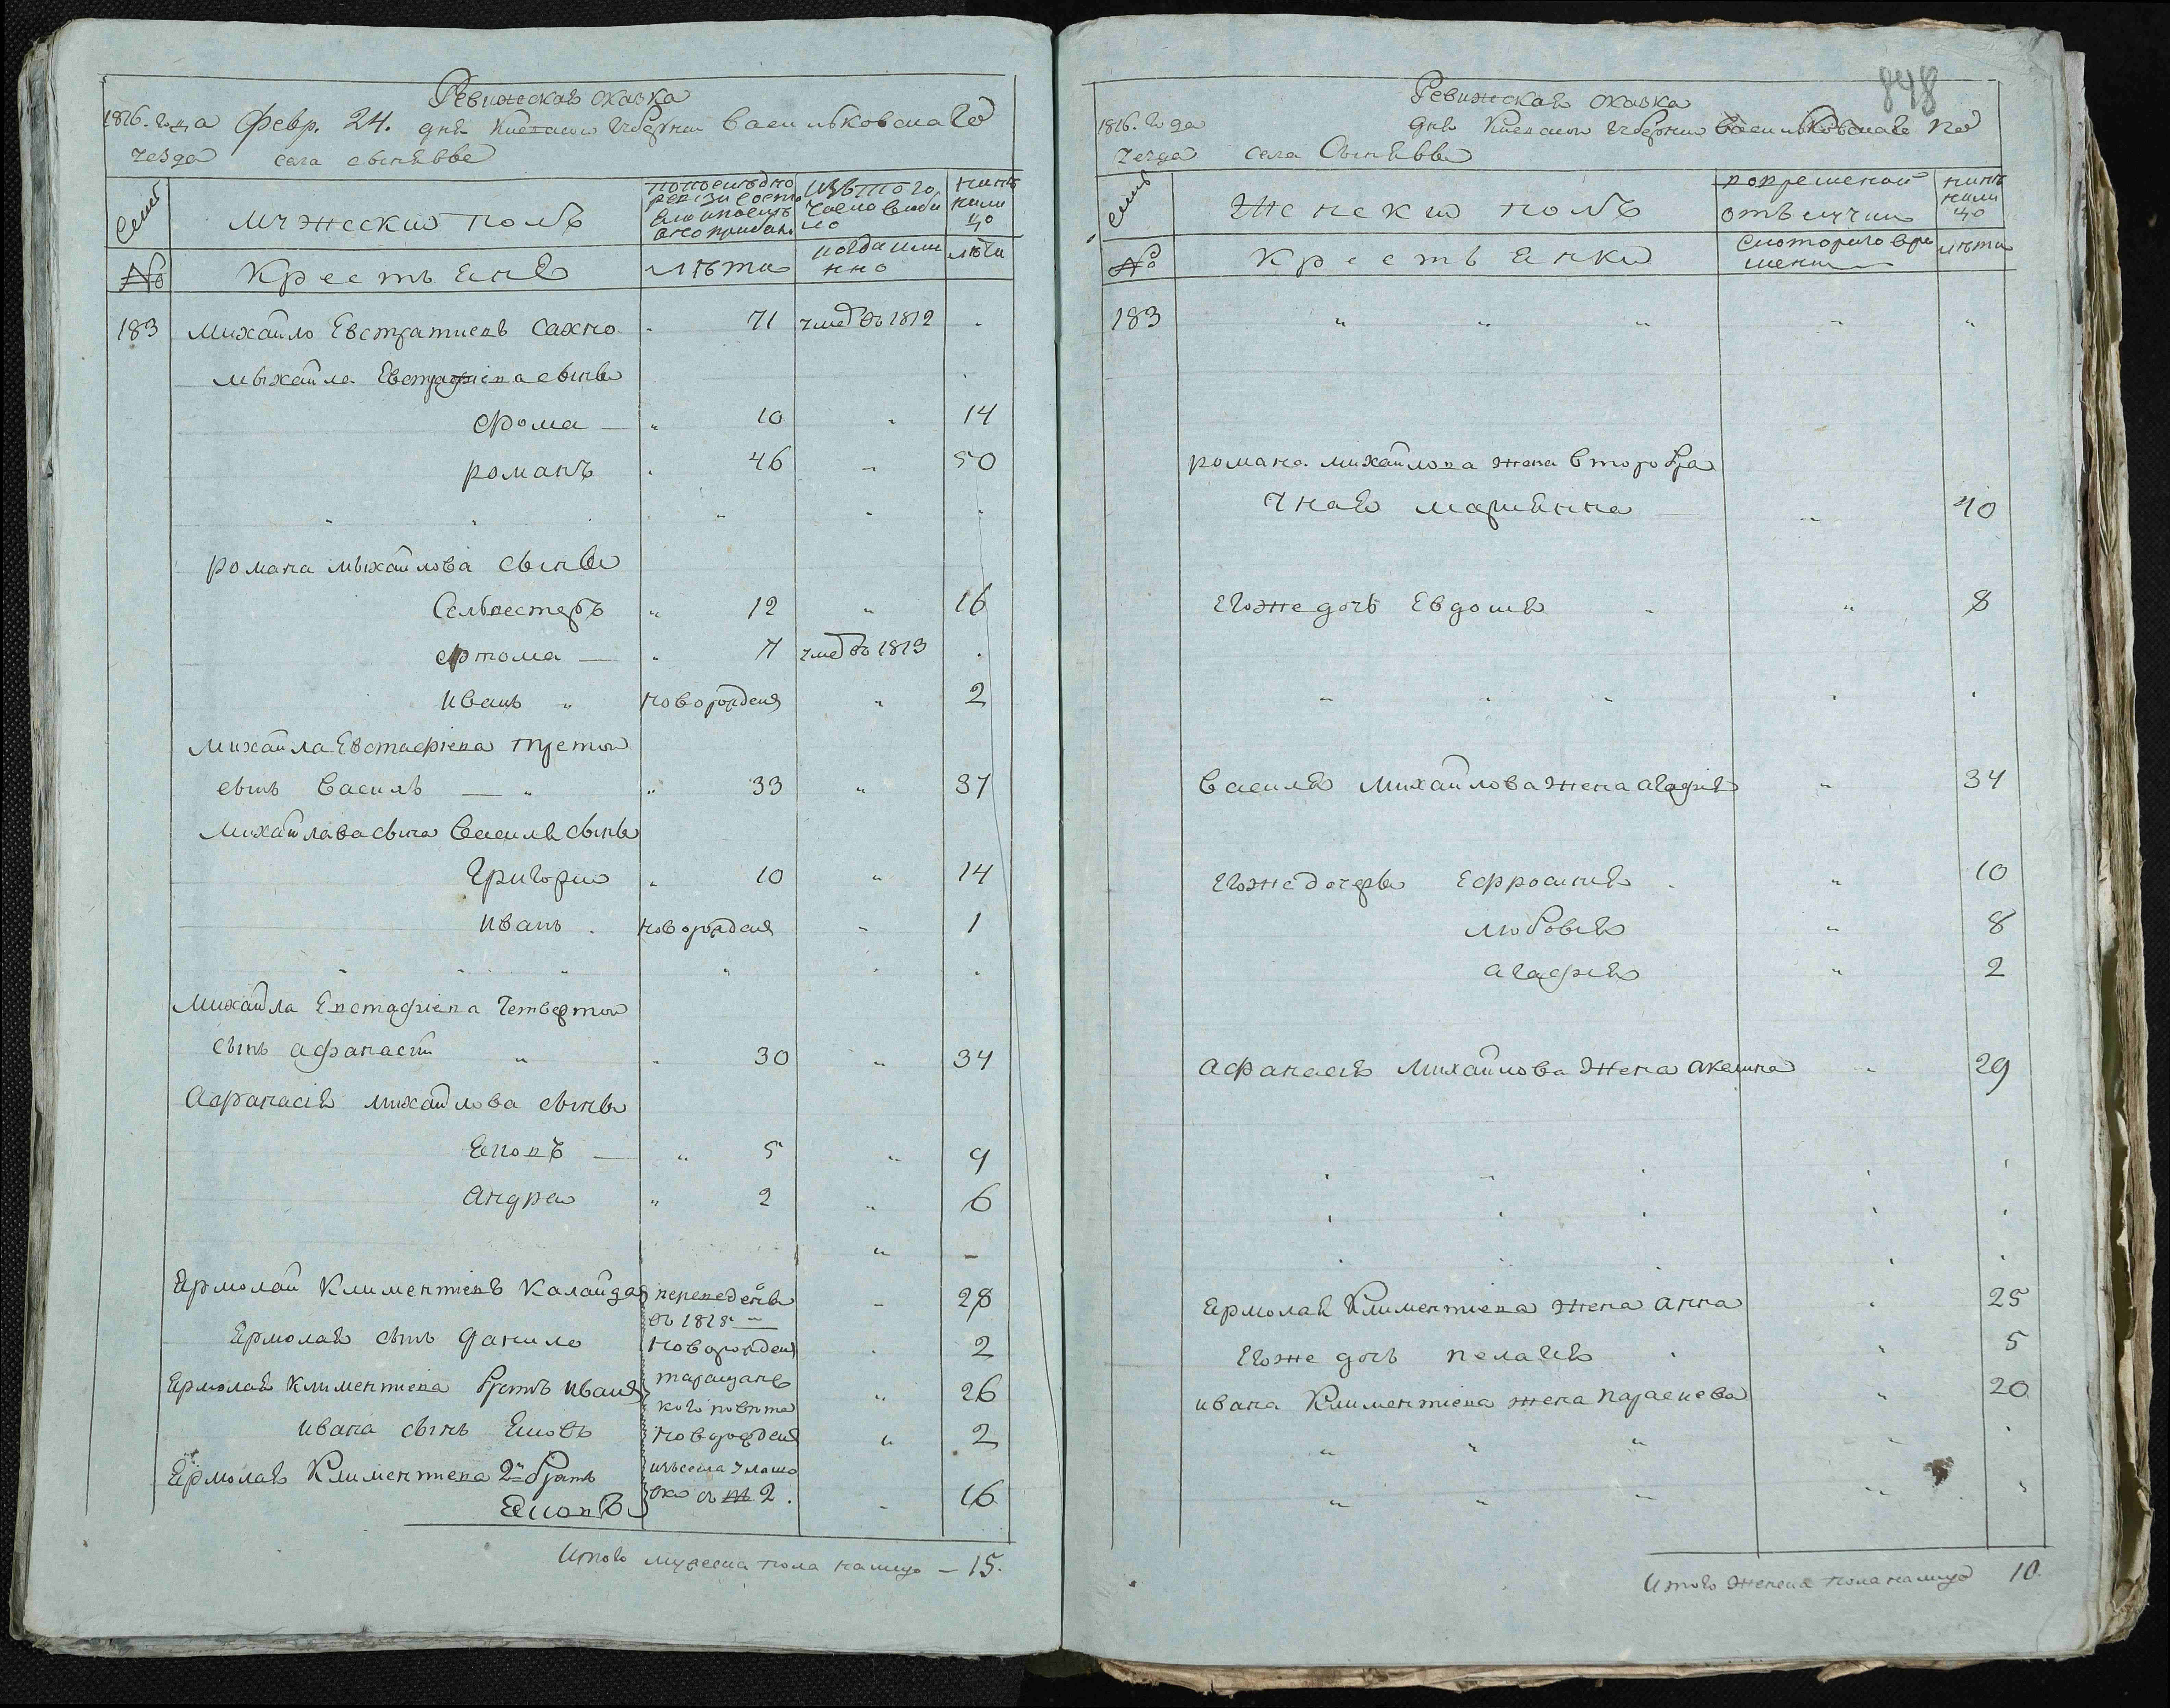 Ревижская сказка
1816. года Февр. 24. дня Киевской губернии Васильковскаго
уезда села
Семьи
Мужеский полъ
изъ того
числа выбы
ло
ныне
нали
цо
№
Крестьяне
лета
когда име
нно
лета
183 Михайло Евстратиевъ Сахно 71 умер въ 1812
Михайла Евстафиева сыны
Фома 10 14
романъ 46 50
романа михайлова сыны
Селвестеръ 12 16
Артома 7 умер въ 1813
Иванъ новорожден 2
Михайла Евстафиева третой
сынъ Василь 33 37
Михайлова сына Василя сыны
Григорий 10 14
Иванъ новорожден 1
Михайла Евстафиева Четвертой
сынъ афанасий 30 34
Афанасия михайлова сыны
Яковъ 5 9
Андрей 2 6
Ярмолай Климентиевъ Калайда переведены 28
въ 1815
Ярмолая сынъ данило новорожден 2
Ярмолая Климентиева братъ иванъ таращанс 26
кого повета
ивана сынъ Яковъ новорожден 2
Ярмолая Климентиева 2й братъ изъ села
Яковъ 16
Итого мужеска пола налицо – 15.
848
Ревижская сказка
1816. года дня Киевской губернии Васильковскаго По
уезда села
Семьи
Женский полъ
во временной
отлучки
ныне
нали
цо
№
Крестьянки
с котораго вре
мени
лета
183
романа михайлова жена второбра
чная марианна 40
Егоже дочь Евдокия 8
Василя Михайлова жена агафия 34
Егоже дочеры Ефросиния 10
любовия 8
агафия 2
Афанасия Михайлова жена акелина 29
Ярмолая Климентиева жена анна 25
Егоже дочь пелагия 5
ивана Климентиева жена параскева 20
Итого женска пола налицо 10.